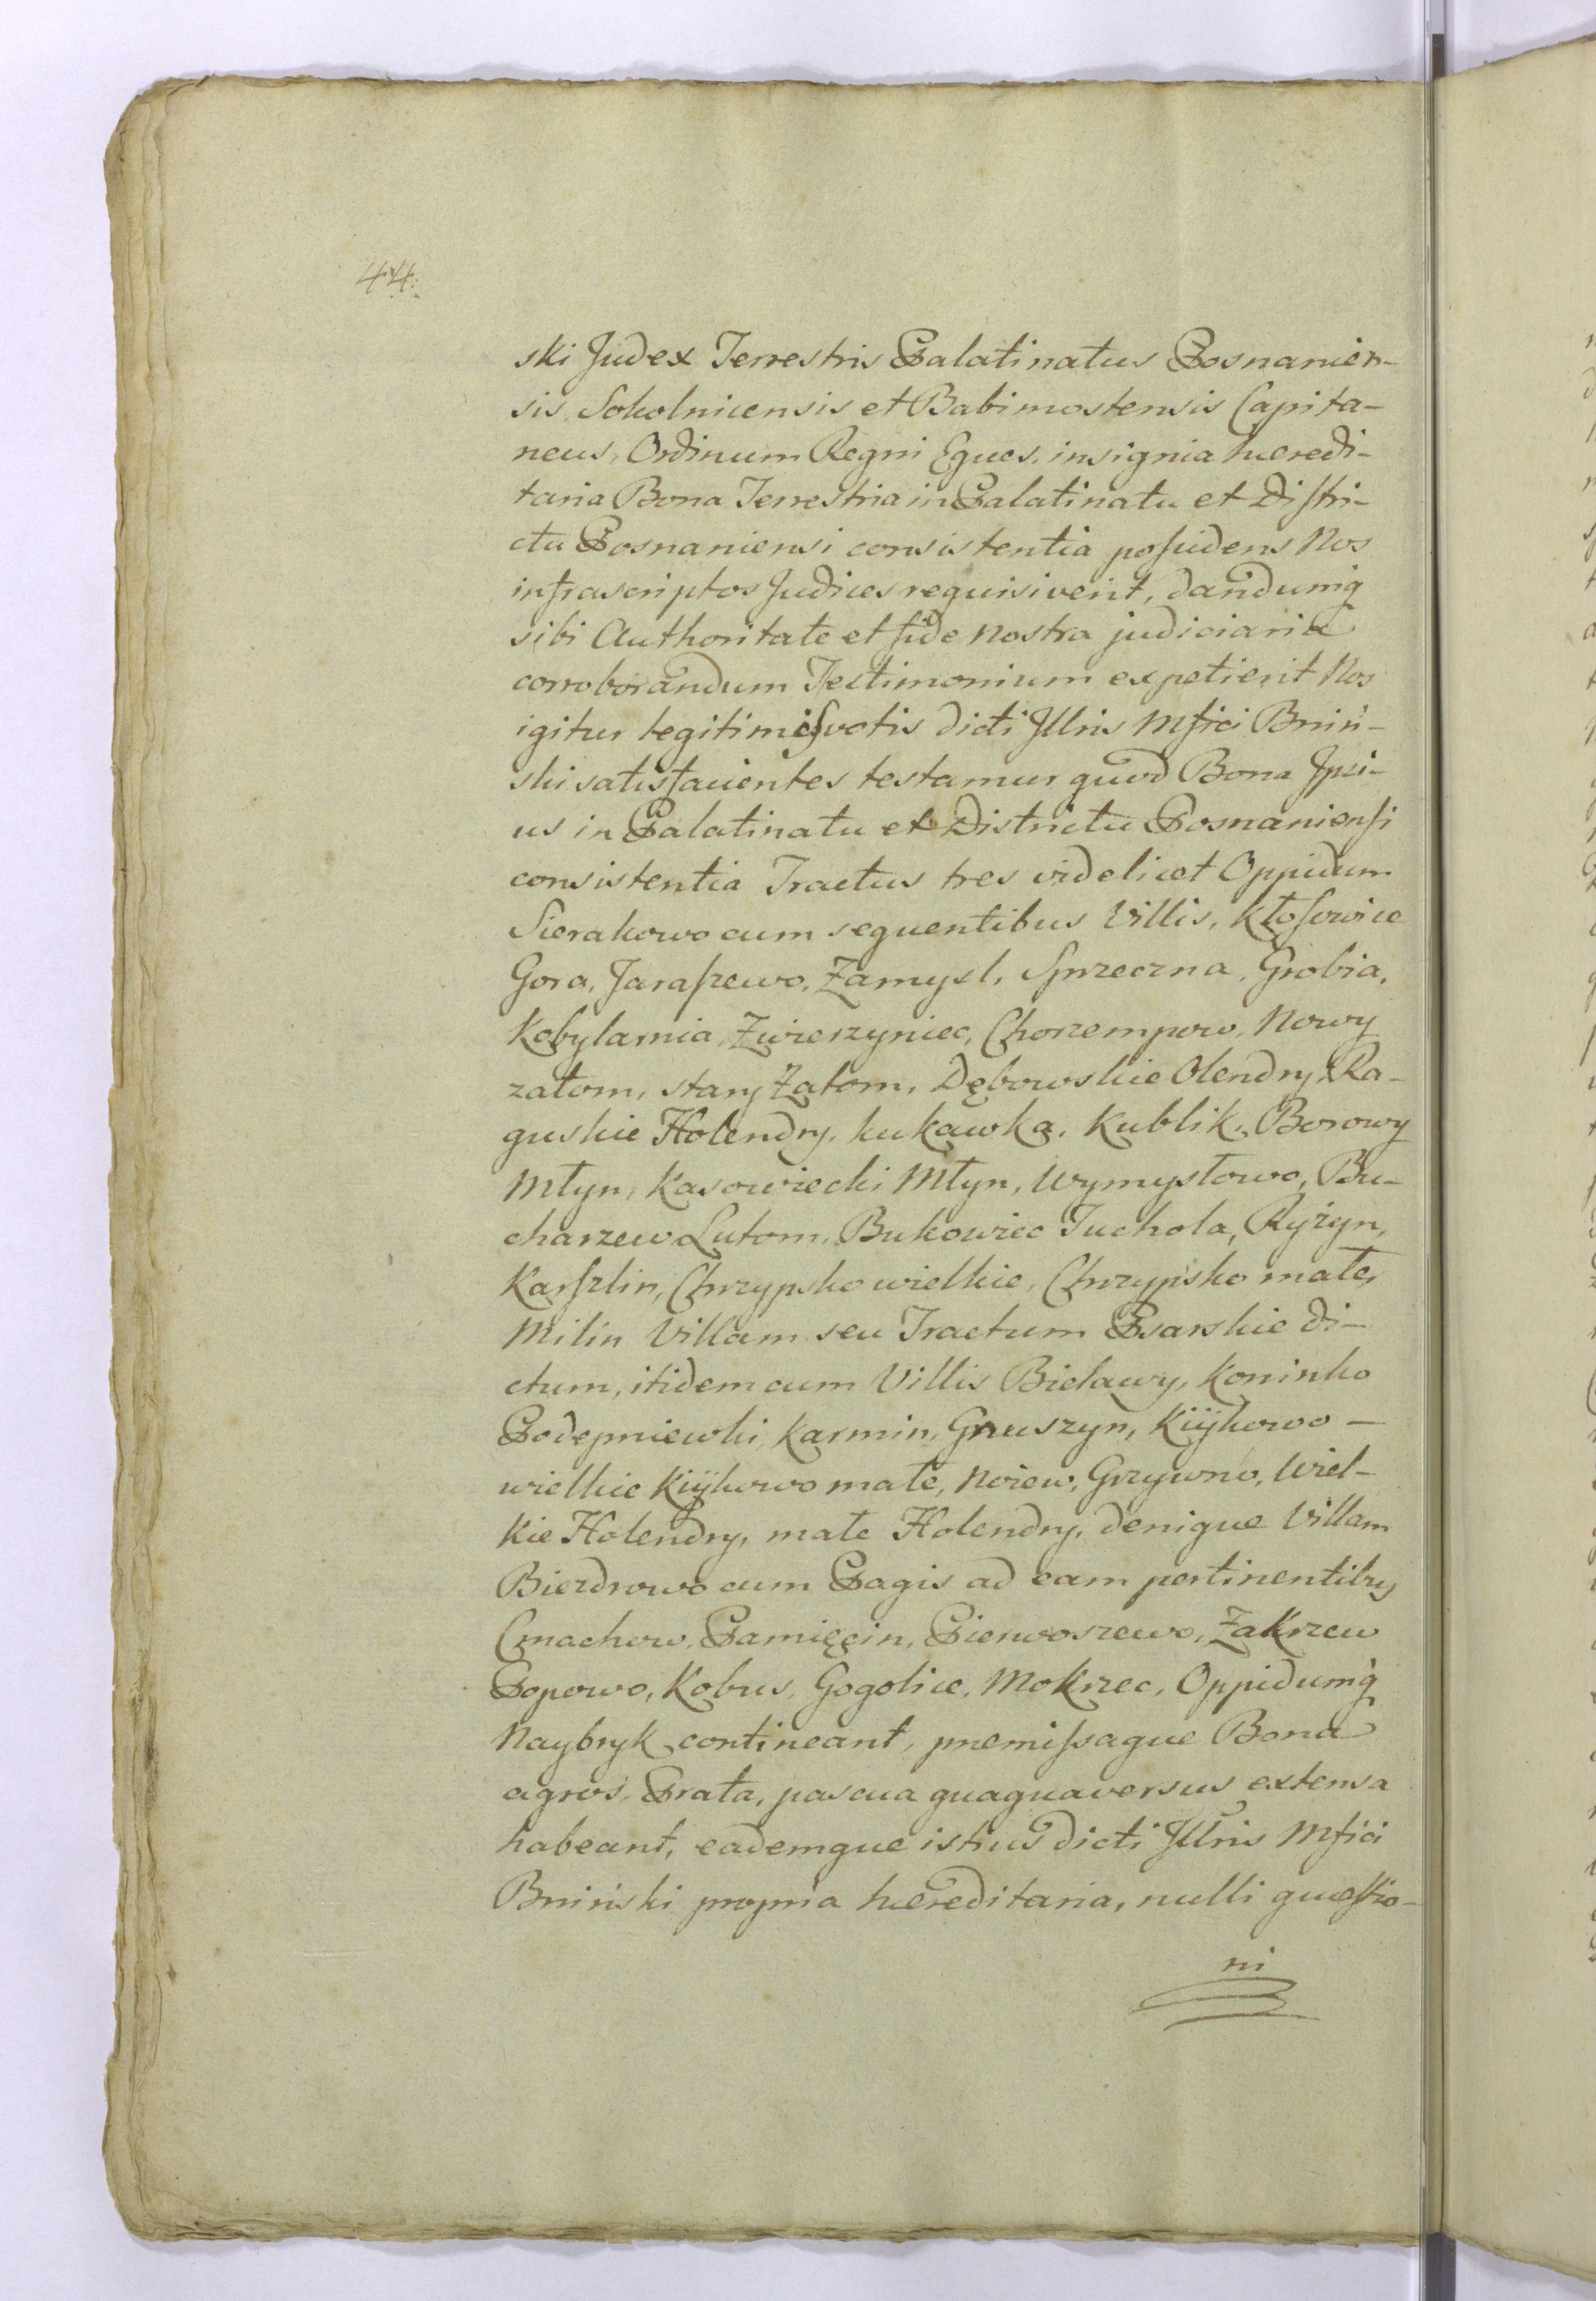 44.
ski Judex Terrestris Palatinatus Posnanien-
sis, Sokolnicensis et Babimostensis Capita-
neus, Ordinum Regni Eques, insignia hæredi-
taria Bona Terrestria in Palatinatu et Distri-
ctu Posnaniensi consistentia possidens Nos
infrascriptos Judices requisiverit, dandumq
sibi Authoritate et fide nostra judiciaria
corroborandum Testimonium expetierit Nos
igitur legitimis votis dicti Jllris Mfici Bniń-
ski satisfacientes testamur quod Bona Jpsi-
us in Palatinatu et Districtu Posnaniensi
consistentia Tractus tres videlicet Oppidum
Sierakowo cum sequentibus Villis, Kłosowice
Gora, Jaraszewo, Zamysl, Sprzeczna, Grobia,
Kobylarnia, Zwierzyniec, Chorzempow, Nowy
zatom, stary Zatom, Dębowskie Olendry, Ra-
guskie Holendry, kukawka, Kublik, Borowy
Młyn, Kasowiecki Młyn, Wymysłowo, Bu-
charzew Lutom, Bukowiec Tuchola, Ryżyn,
Karszlin, Chrzypsko wielkie, Chrzypsko małe,
Milin Villam seu Tractum Psarskie di-
ctum, itidem cum Villis Bielawy, Koninko
Podepniewki, Karmin, Gnuszyn, Kiÿkowo -
wielkie Kiÿkowo małe, Noiew, Grzywno, Wiel-
kie Holendry, małe Holendry, denique Villam
Biezdrowo cum Pagis ad eam pertinentibus
Cmachow, Pamięcin, Pierwoszewo, Zakrzew
Popowo, Kobus, Gogolice, Mokrzec, Oppidumq
Naybryk contineant, premissaque Bona
agros, Prata, pascua quaquaversus extensa
habeant, eademque istius dicti Jllris Mfici
Bniński propria hæreditaria, nulli quæstio-
ni